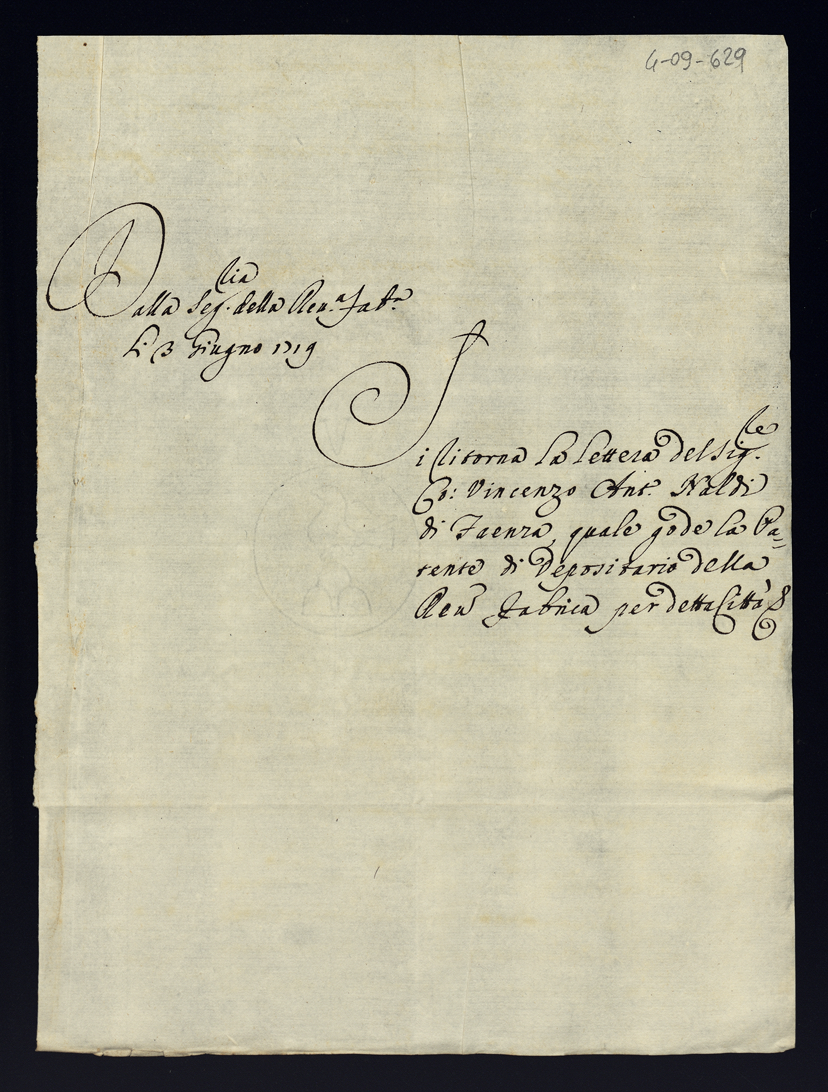 4-09-629
Dalla Seg.ria della Reu.a Fab.a
Li 3 Giugno 1719
Si ritorna la lettera del Sig.re
Co: Vincenzo Ant.o Naldi
di Faenza, quale gode la Pa=
tente di Depositario della
Reu.a Fabrica per detta Città